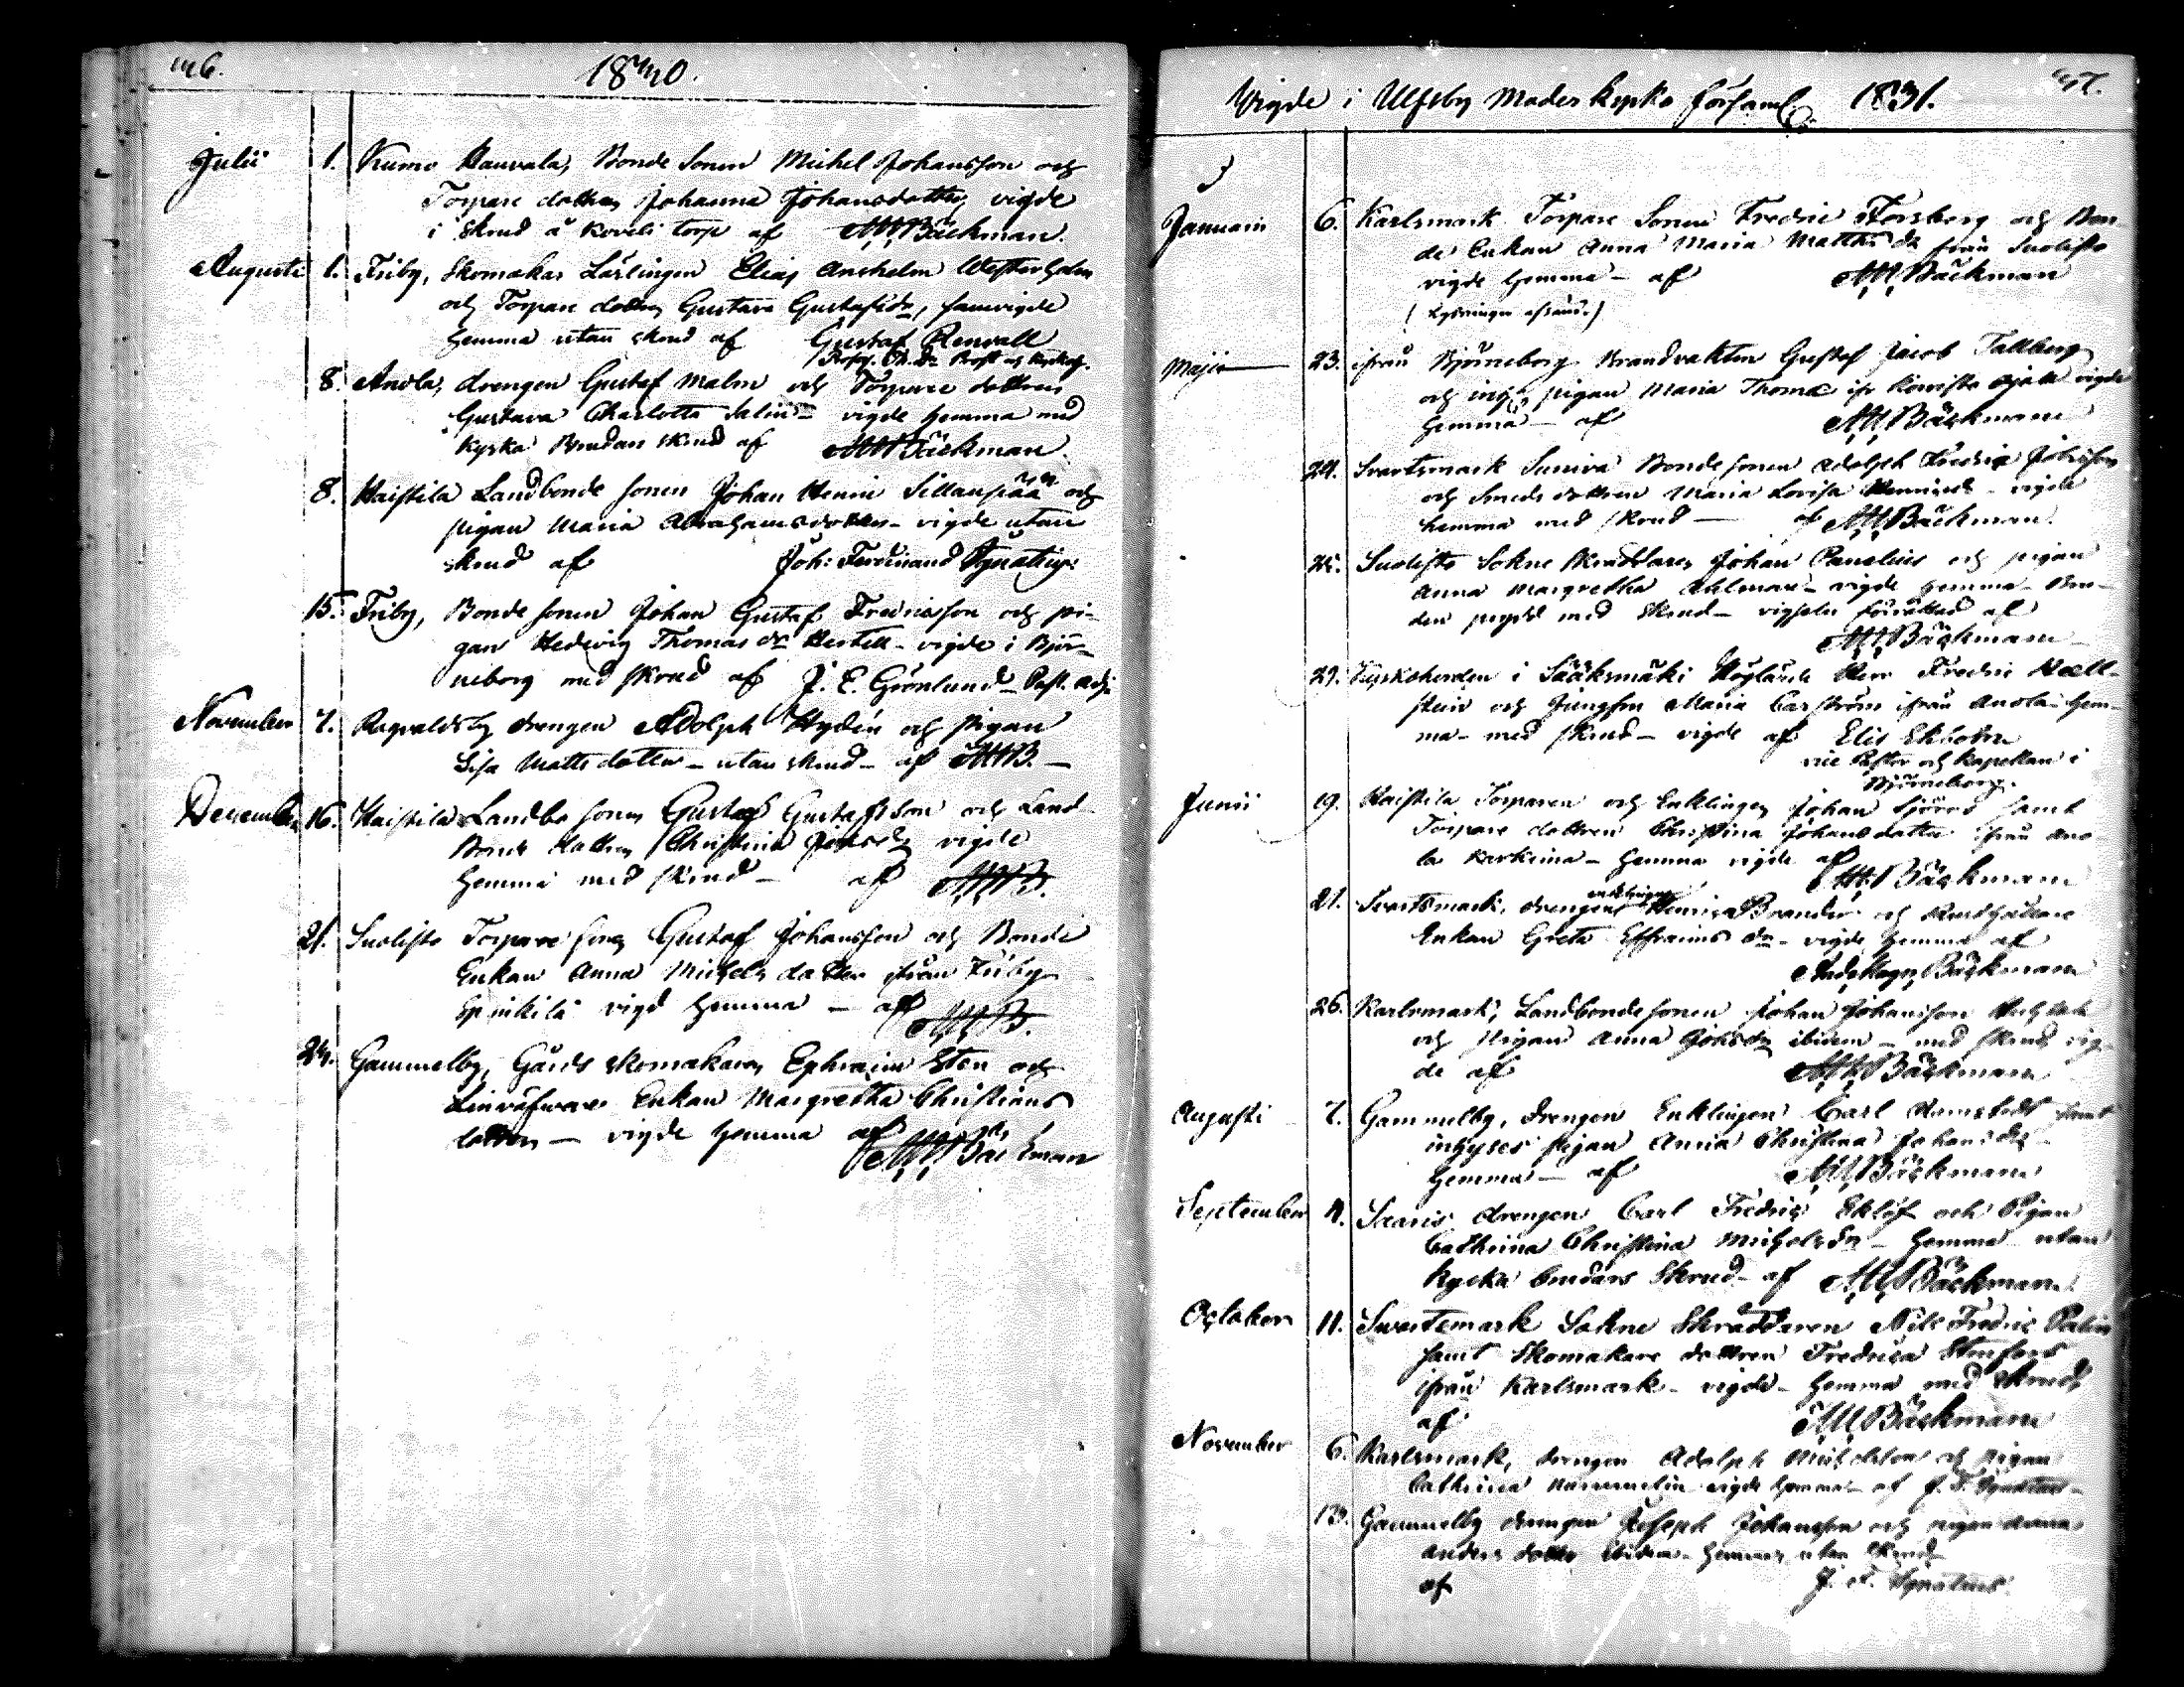 1830.
Julii 1. Kumo Haurala, Bonde Sonen Michel Johansson och
Torpare dottren Johanna Johansdotter, vigde
i skrud å Koveli torp af AMBäckman.
Augusti 1. Friby, Skomakar Lärlingen Elias Anshelm Westerholm
och Torpare dottren Gustava Gustafsdr, samvigde
hemma utan skrud af Gustaf Renvall
Profess. Th. Dr Prost og Kyrkoh.
8. Anola, drengen Gustaf Malm och Torpare dottren
Gustava Charlotta Salin - vigde hemma med
Kyrko Brudars skrud af AMBäckman.
8. Haistila Landbonde sonen Johan Henric Sillanpää och
pigan Maria Abrahamsdotter - vigde utan
skrud af Joh: Ferdinand Ignatius
15. Friby, Bonde sonen Johan Gustaf Fredricsson och pi-
gan Hedevig Thomas dr Hertell - vigde i Björ-
neborg med skrud af J. E. Grönlund - Past. adj.
November 7. Ragvaldsby drengen Adolph Hydén och pigan
Lisa Matts dotter - utan skrud - af AMB. -
December 16. Haistila Landbo sonen Gustaf Gustafsson och Land
Bonde dottren Christina Johsdr vigde
hemma med skrud - af AMB.
21. Suolisto Torpare sonen Gustaf Johansson och Bonde
Enkan Anna Michels dotter ifrån Friby
Epinkila vigd hemma - af AMB.
Gammelby, Gårds skomakaren Ephraim Sten och
Enkan Margretha Christians
dotter - vigde hemma af AMBäckman
Vigde i Ulfsby Moderkyrko församl. 1831.
Januarii 6. Karlsmark Torpare Sonen Fredric Forsberg och Bon-
de Enkan Anna Maria Matths dr från Suolisto
vigde hemma - af AMBäckman
Maji 23. ifrån Björneborg Brandvakten Gustaf Jacob Tallberg
och pigan Maria Thomæ vigde
hemma - af AMBäckman
24. Svartsmark Suniva Bonde sonen Adolph Fredric
och Smeds dottren Maria Lovisa - vigde
hemma med skrud - af AMBäckman.
Suolisto Sokne Skräddaren Johan Panelius och pigan
Anna Margretha Ahlman - vigde hemma - Bru-
den prydd med skrud - vigseln förrättad af
AMBäckman
Kyrkoherden i Sääksmäki Höglärde Herr Fredric Hæll-
sten och Jungfru Maria Carström ifrån Anola - hem-
ma - med skrud - vigde af Elis Ekbohm
vice Pastor och Kapellan i
Björneborg.
Junii 19. Haistila Torparen och Enklingen Johan Sjörod samt
Torpare dottren Christina Johansdotter ifrån Ano-
la - hemma vigde af
AMBäckman
21. Svartsmark, drengen enklingen Henric Brander och
Enkan Greta Effraims dr - vigde hemma af
Ands Magn, Bäckman
26. Karlsmark, Landbonde sonen Johan Johansson
och pigan Anna Johsdr ibidem - med skrud vig-
de af AMBäckman
Augusti 7. Gammelby, drengen Enklingen Carl Ramstedt samt
inhyses pigan Anna Christina Johansdr -
hemma - af AMBäckman
September 4. Saaris drengen Carl Fredric Eklöf och Pigan
Cathrina Christina Michelsdr - hemma utan
Kyrko brudars Skrud - af AMBäckman
October 11. Svartsmark Sokne Skräddaren Nils Fredric Palin
samt Skomakare dottren Fredrica Stenfors
ifrån Karlsmark - vigde - hemma med skrud,
af AMBäckman
November 6. Karlsmark, drengen Adolph Michelsson och pigan
Cathrina Nummelin vigde hemma - af J. F. Ignatius -
13. Gammelby drengen Joseph Johansson och pigan Anna
Anders dotter ibidem - hemma, utan skrud -
af J. F. Ignatius.